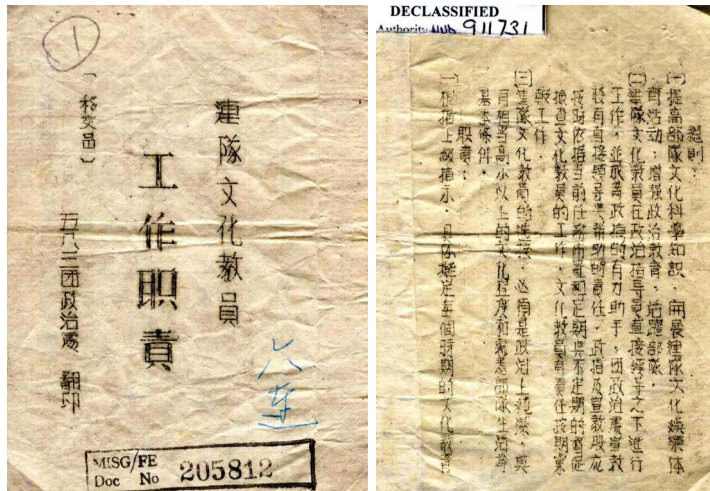 ①
連隊文化教員
工作職責
(移交品)
五六三團政治處 翻印
六连
MISG/FE
Doc No 205812
DECLASSIFIED
Authority NND 911731
總則：
(一)提高部隊文化科學知識，開展連隊文化娛樂体
育活动，增强政治教育，活躍部隊。
(二)連隊文化教員在政治指導員直接領導之下進行
工作，並成為政指的有力助手，團政治處宣教
股有直接領導其帮助的責任，政指及宣教股應
按時依据当前任務
定期與不定期的督促
檢查文化教員的工作，文化教員有責任按期
報工作。
(三)連隊文化教員的選 ，必須是政治上純潔，與
有相当高小以上的文化程度和熟悉部隊生活等
基本條件。
職責：
(一)根据上級指示，具体擬定每個時期的文化教育